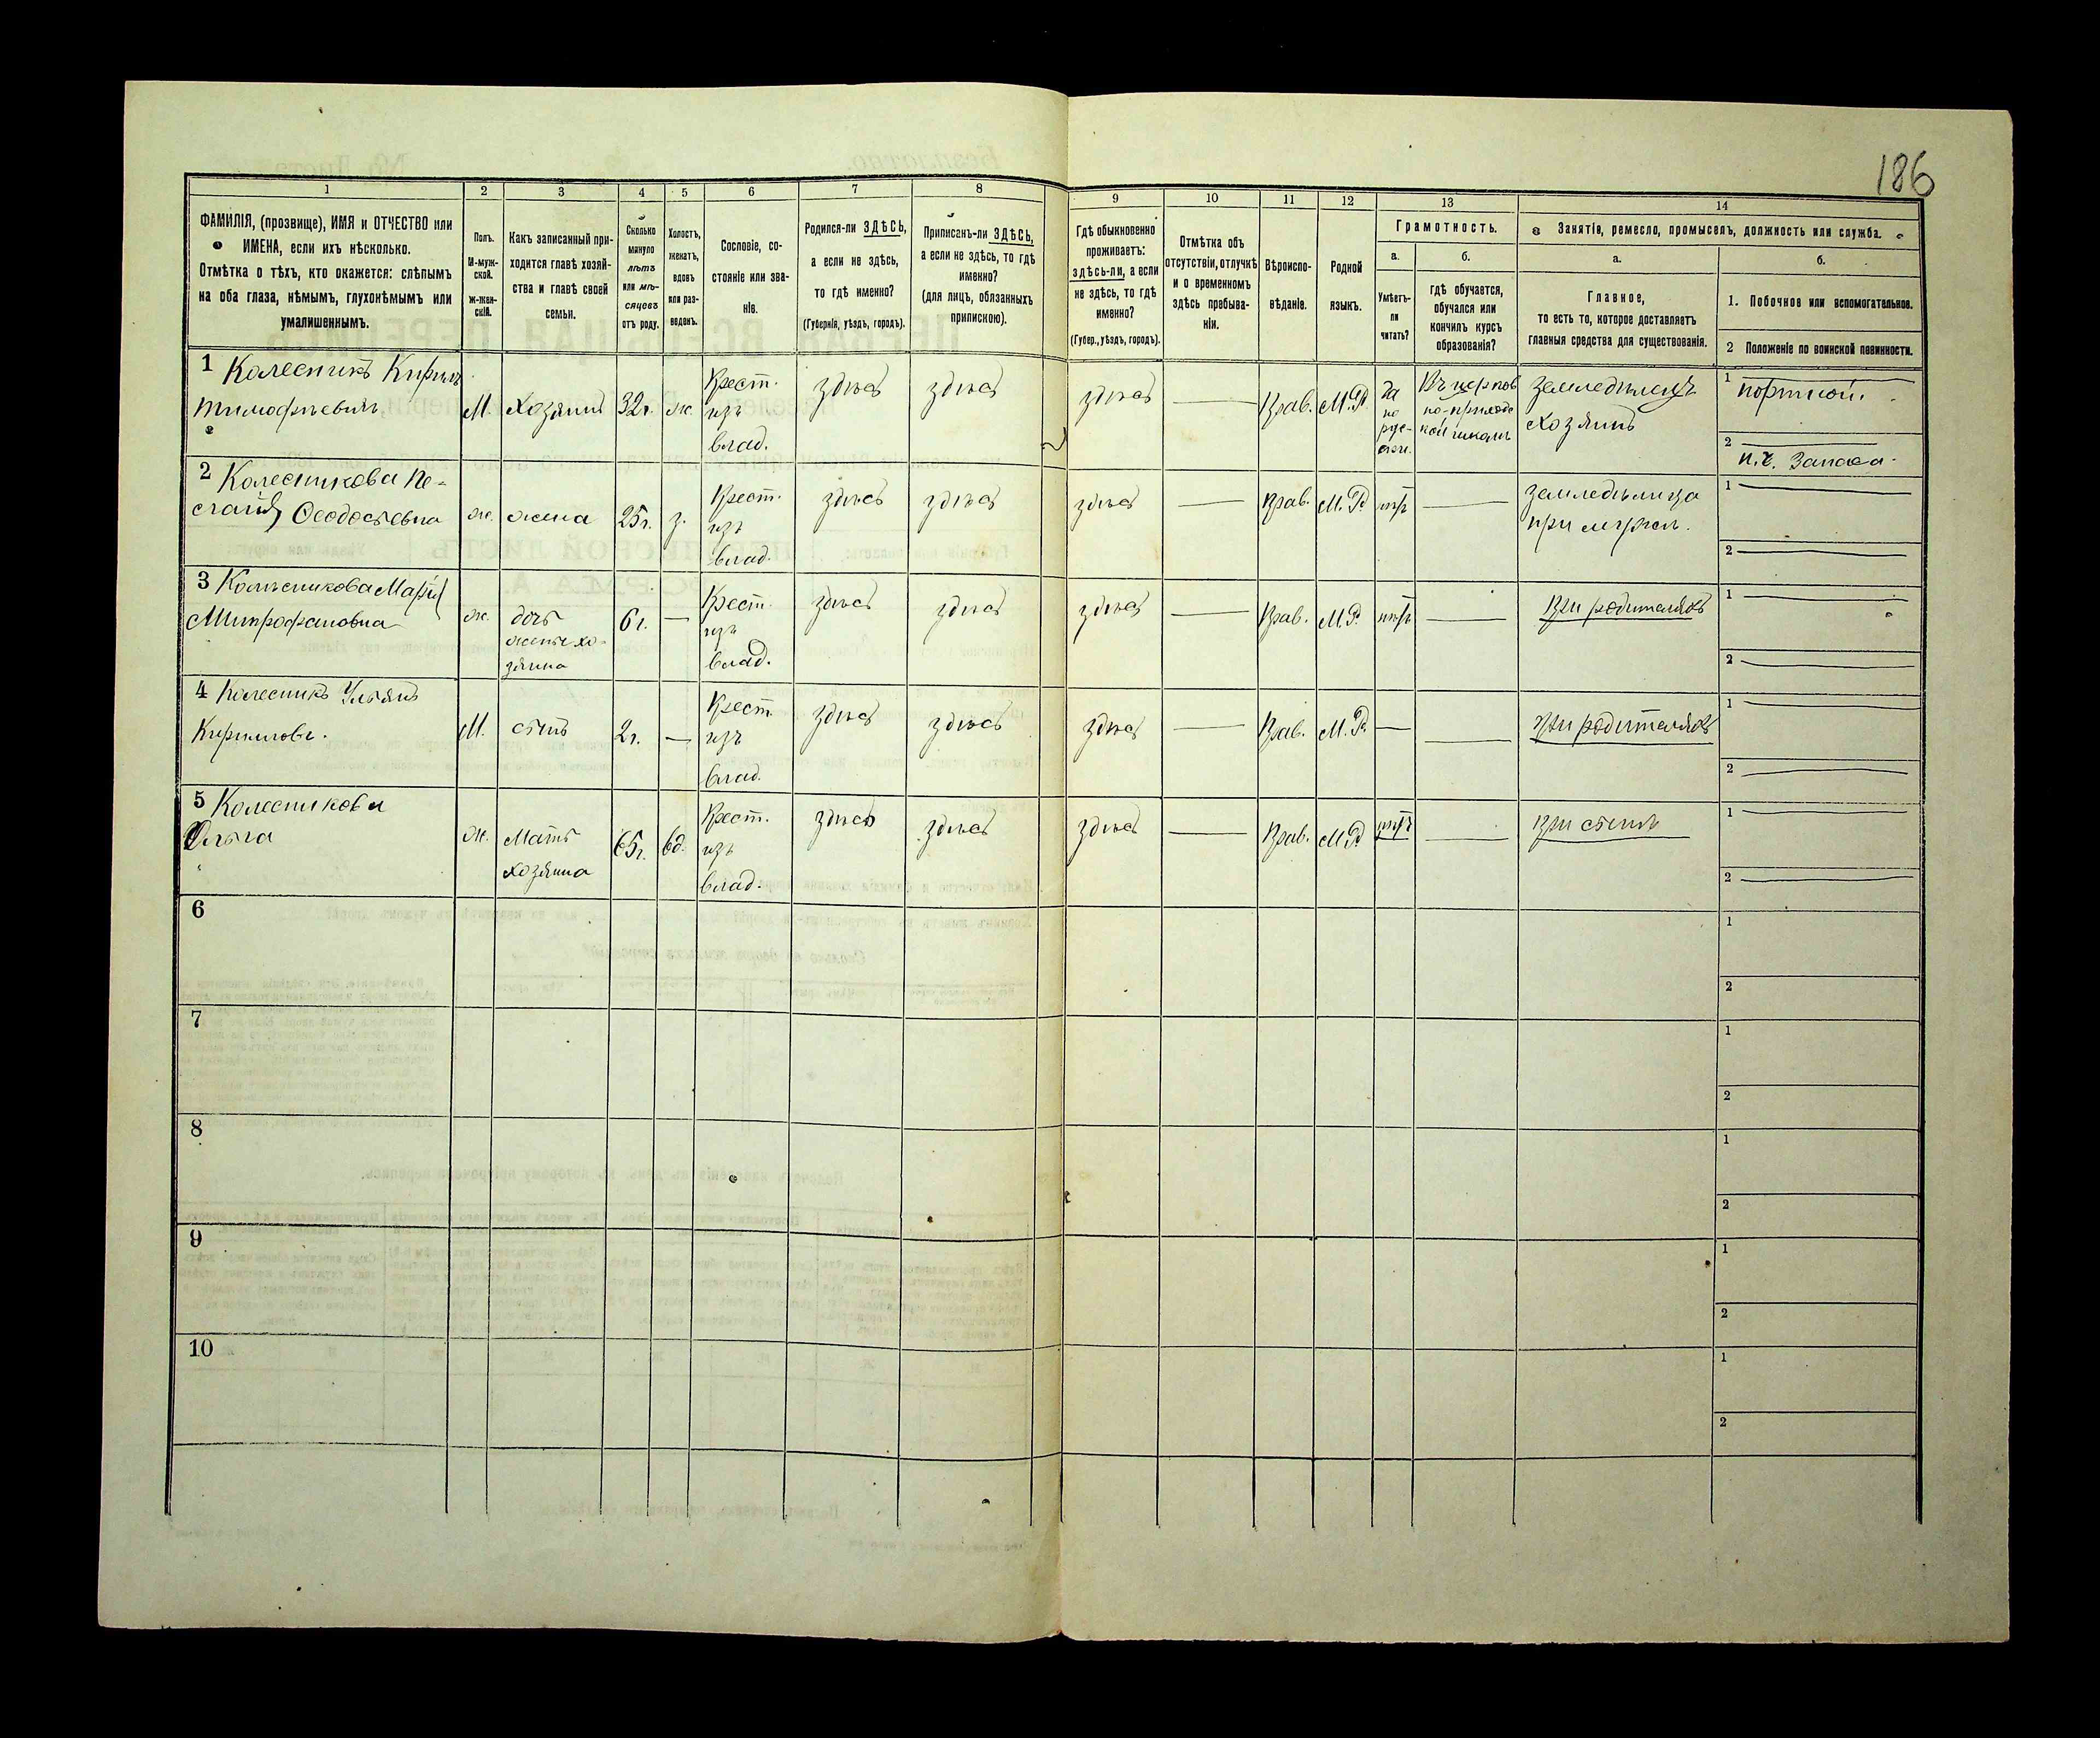 186
1
2
3
4
5
6
7
8
9
10
11
12
13
14
ФАМИЛІЯ, (прозвище), ИМЯ и ОТЧЕСТВО или
ИМЕНА, если ихъ нѣсколько.
Отмѣтка о тѣхъ, кто окажется: слѣпымъ
на оба глаза, нѣмымъ, глухонѣмымъ или
умалишеннымъ.
Полъ.
М-муж-
ской.
ж-жен-
скій.
Какъ записанный при-
ходится главѣ хозяй-
ства и главѣ своей
семьи.
Сколько
минуло
лѣтъ
или мѣ-
сяцевъ
отъ роду.
Холостъ,
женатъ,
вдовъ
или раз-
веденъ.
Сословіе, со-
стояніе или зва-
ніе.
Родился-ли ЗДѢСЬ,
а если не здѣсь,
то гдѣ именно?
(Губернія, уѣздъ, городъ).
Приписанъ-ли ЗДѢСЬ,
а если не здѣсь, то гдѣ
именно?
(для лицъ, обязанныхъ
припискою).
Гдѣ обыкновенно
проживаетъ:
здѣсь-ли, а если
не здѣсь, то гдѣ
именно?
(Губер., уѣздъ, городъ).
Отмѣтка объ
отсутствіи, отлучкѣ
и о временномъ
здѣсь пребыва-
ніи.
Вѣроиспо-
вѣданіе.
Родной
языкъ.
Грамотность.
а.
Умѣетъ-
ли
читать?
б.
гдѣ обучается,
обучался или
кончилъ курсъ
образованія?
Занятіе, ремесло, промыселъ, должность или служба.
а.
Главное,
то есть то, которое доставляетъ
главныя средства для существованія.
б.
1. Побочное или вспомогательное.
2 Положеніе по воинской повинности.
1 Колесникъ Кирилъ
Тимофѣевичъ
М.
Хозяинъ
32 г.
ж.
Крест.
изъ
влад.
здѣсь
здѣсь
здѣсь
Прав.
М.Р.
да
по
рус-
ски.
Въ церков
но-приходс
кой школѣ
земледѣлецъ
хозяинъ
1 портной.
2 н.ч. Запаса.
2 Колесникова Пе-
лагія Феодосьевна
ж.
жена
25 г.
з.
Крест.
изъ
влад.
здѣсь
здѣсь
здѣсь
Прав.
М.Р.
нѣтъ
земледѣлица
при мужѣ.
1
2
3 Колѣсникова Марія
Митрофановна
ж.
дочь
жены хо-
зяина
6 г.
Крест.
изъ
влад.
здѣсь
здѣсь
здѣсь
Прав.
М.Р.
нѣтъ
при родителяхъ
1
2
4 Колесникъ Ульянъ
Кирилловъ.
М.
сынъ
2 г.
Крест.
изъ
влад.
здѣсь
здѣсь
здѣсь
Прав.
М.Р.
при родителяхъ
1
2
5 Колесникова
Ольга
ж.
Мать
хозяина
65 г.
вд.
Крест.
изъ
влад.
здѣсь
здѣсь
здѣсь
Прав.
М.Р
нѣтъ
при сынѣ
1
2
6
1
2
7
1
2
8
1
2
9
1
2
10
1
2